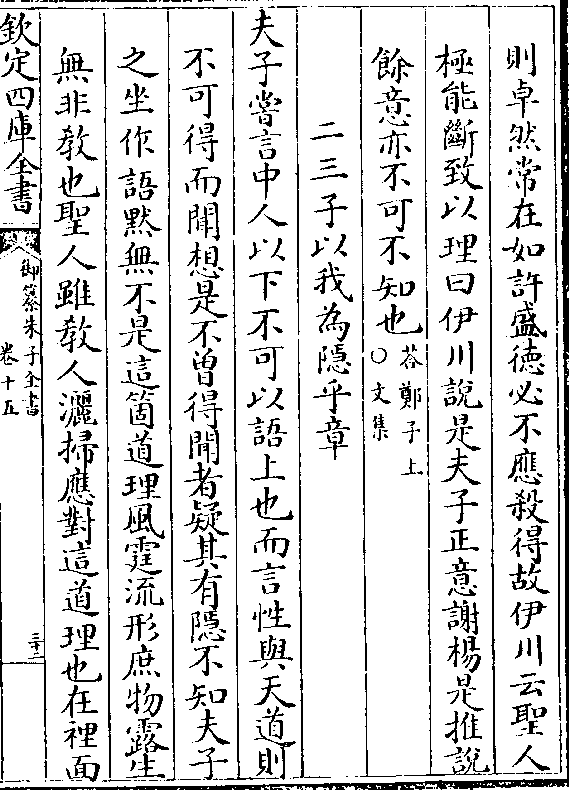 則卓然常在如許盛德必不應殺得故伊川云聖人
極能斷致以理曰伊川說是夫子正意謝楊是推說
餘意亦不可不知也答鄭子上○文集
二三子以我為隱乎章
夫子嘗言中人以下不可以語上也而言性與天道則
不可得而聞想是不曾得聞者疑其有隱不知夫子
之坐作語黙無不是這箇道理風霆流形庶物露生
無非教也聖人雖教人灑掃應對這道理也在裡面
欽定四庫全書
御纂朱子全書
卷十五
三十二